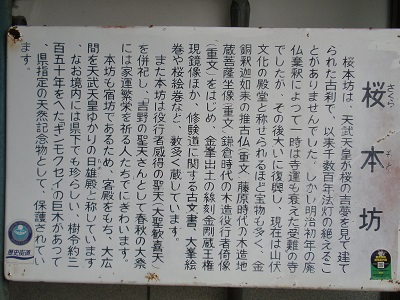 桜本坊
さくら
桜本坊は、天武天皇が桜の吉夢を見て建て
られた古刹で、以来千数百年法灯の絶えるこ
とがありませんでした。しかし明治初年の廃
仏棄釈によって一時は寺運も衰えた受難の寺
でしたが、その後大いに復興し、現在は山伏
文化の殿堂と称せられるほど宝物も多く、金
銅釈迦如来の推古仏（重文）藤原時代の木造地
蔵菩薩坐像（重文）鎌倉時代の木造役行者倚像
（重文）をはじめ、金峯出土の線刻金剛蔵王権
現鏡像ほか、修験道に関する古文書、大峯絵
巻や桜絵巻など、数多く蔵しています。
また本坊は役行者感得の聖天（大聖歓喜天）
を併祀し、「吉野の聖天さん」として春秋の大祭
には家運繁栄を祈る人たちでにぎわいます。
本坊も宿坊であるため、客殿をもち、大広
間を天武天皇ゆかりの日雄殿と称しています
なお境内には県下でも珍らしい、樹令約三
百五十年をへた「ギンモクセイ」の巨木があって
県指定の天然記念物として、保護されてい
ます。
歴史街道